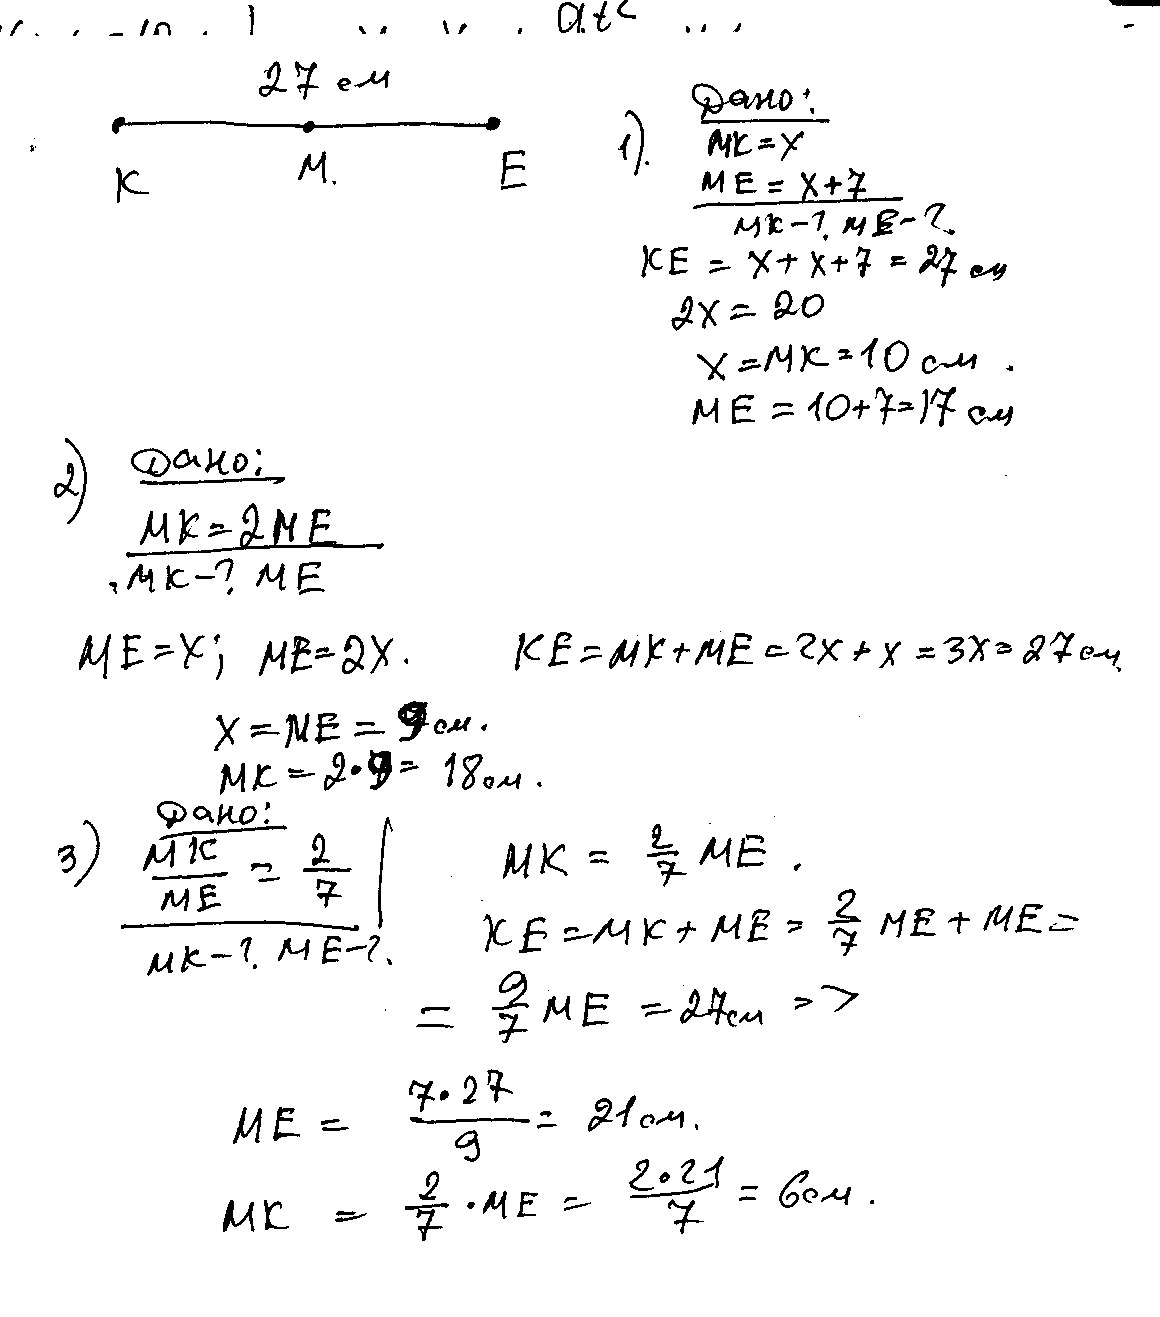 at²
27 см
K M. E
1). Дано:
MK=x
ME = x+7
MK-?. ME-?.
KE = x+x+7 = 27 см
2x = 20
x = MK = 10 см.
ME = 10+7=17 см
2) Дано:
MK=2ME
MK-? ME
ME=x; ME=2x. KE=MK+ME=2x+x=3x=27см
x=ME=9см.
MK=2·9= 18см.
3) Дано:
MK/ME = 2/7
MK-?. ME-?.
MK = 2/7 ME.
KE=MK+ME= 2/7 ME+ME=
= 9/7 ME =27см =>
ME = 7·27/9 = 21см.
MK = 2/7 ·ME = 2·21/7 = 6см.